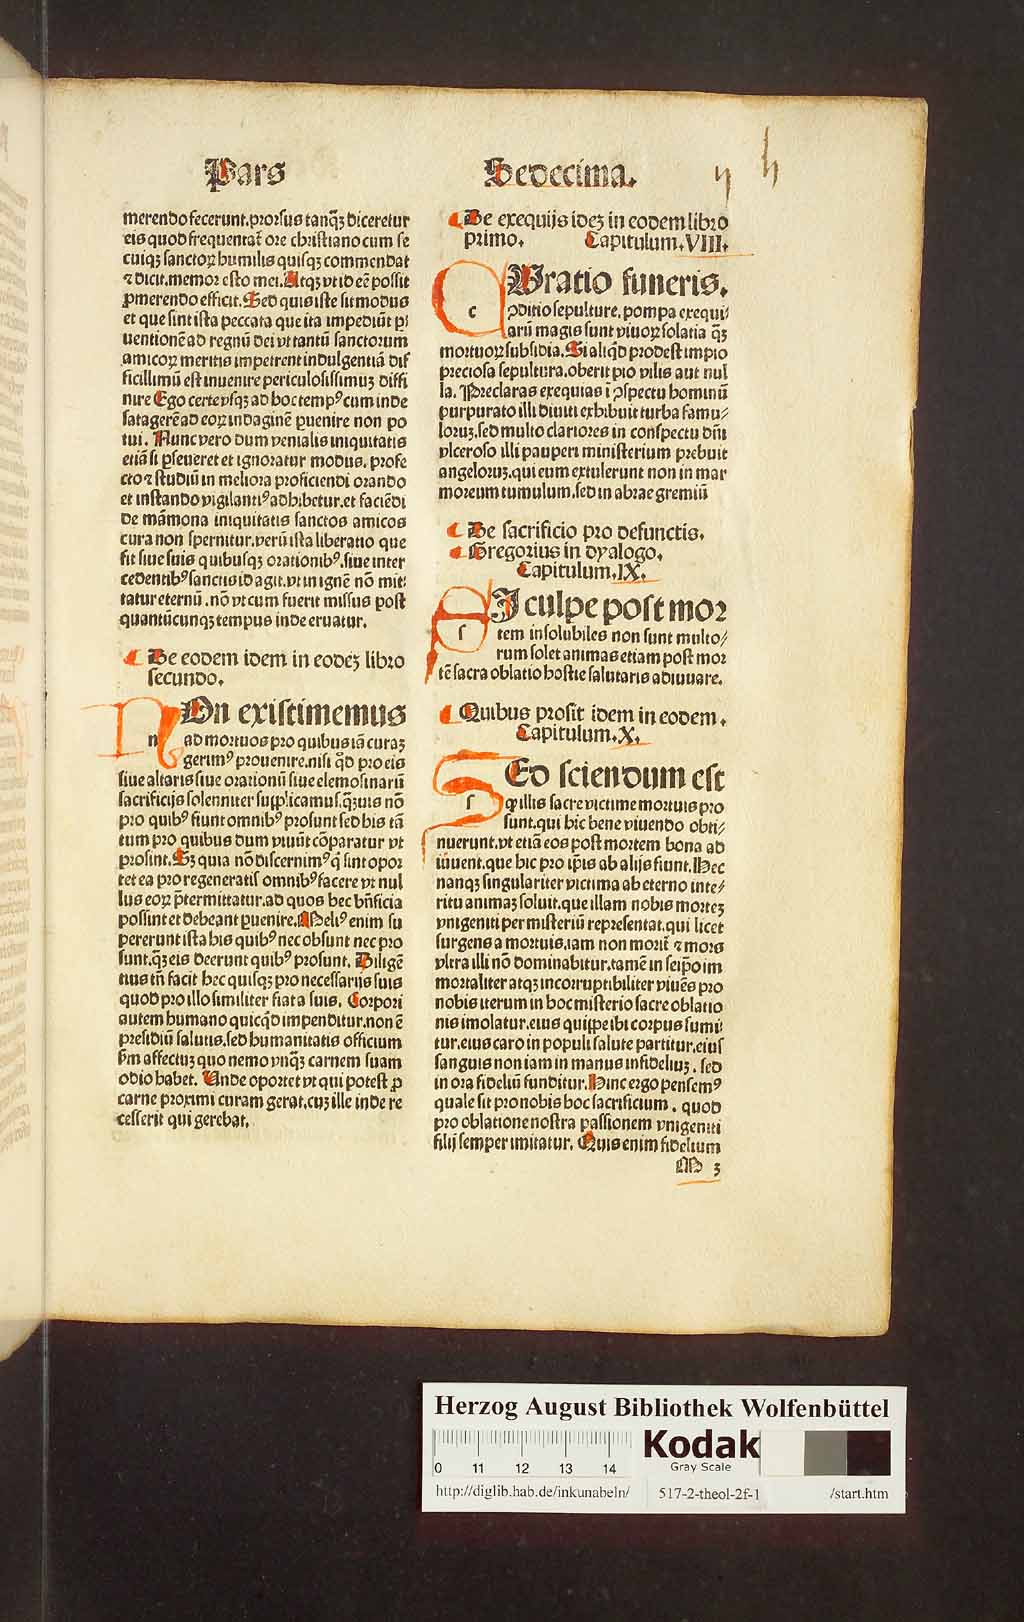 Pars
Sedecima.
merendo fecerunt.prorsus tanqȝ diceretur
eis quod frequentat̄ ore christiano cum se
cuiqȝ sanctoꝝ humilis quisqȝ commendat
⁊ dicit.memor esto mei.Atqȝ vt id eē possit
ꝓmerendo efficit. Sed quis iste sit modus
et que sint ista peccata que ita impediūt p̄/
uentionē ad regnū dei vt tantū sanctorum
amicoꝝ meritis impetrent indulgentiā dif
ficillimū est inuenire periculosissimuȝ diffi
nire Ego certe vsqȝ ad hoc tempꝰ cum inde
satagerē ad eoꝝ indaginē ꝑuenire non po
tui. Nunc vero dum venialis iniquitatis
etiā si ꝑseueret et ignoratur modus, profe
cto ⁊ studiū in meliora proficiendi orando
et instando vigilantiꝰ adhibetur.et faciēdi
de māmona iniquitatis sanctos amicos
cura non spernitur.verū ista liberatio que
fit siue suis quibusqȝ orationibꝰ.siue inter
cedentibꝰ sanctis id agit.vt in ignē nō mit/
tatur eternū.nō vt cum fuerit missus post
quantūcunqȝ tempus inde eruatur.
De eodem idem in eodeȝ libro
secundo.
NOn existimemus
n ad mortuos pro quibus iā curaȝ
gerimꝰ prouenire.nisi qd̓ pro eis
siue altaris siue orationū siue elemosinarū
sacrificijs solenniter supplicamus.qȝuis nō
pro quibꝰ fiunt omnibꝰ prosunt sed his tā
tum pro quibus dum viuūt cōparatur vt
prosint.Sȝ quia nō discernimꝰ q̄ sint opor
tet ea pro regeneratis omnibꝰ facere vt nul
lus eoꝝ p̄termittatur.ad quos hec bn̄ficia
possint et debeant ꝑuenire.Meliꝰ enim su
pererunt ista his quibꝰ nec obsunt nec pro
sunt.qȝ eis deerunt quibꝰ prosunt. Diligē
tius tn̄ facit hec quisqȝ pro necessarijs suis
quod pro illo similiter fiat a suis. Corpori
autem humano quicqd̓ impenditur.non ē
presidiū salutis.sed humanitatis officium
sm̄ affectuȝ quo nemo vnqȝ carnem suam
odio habet. Unde oportet vt qui potest ꝓ
carne proximi curam gerat.cuȝ ille inde re
cesserit qui gerebat.
De exequijs ideȝ in eodem libro
primo. Capitulum.VIII.
CUratio funeris.
c ꝯditio sepulture, pompa exequi/
arū magis sunt viuoꝝ solatia qȝ
mortuoꝝ subsidia. Si aliqd̓ prodest impio
preciosa sepultura.oberit pio vilis aut nul
la. Preclaras exequias ī ꝯspectu hominū
purpurato illi diuiti exhibuit turba famu/
loruȝ.sed multo clariores in conspectu dn̄i
vlceroso illi pauperi ministerium prebuit
angeloruȝ.qui eum extulerunt non in mar
moreum tumulum.sed in abrae gremiū
De sacrificio pro defunctis.
Gregorius in dyalogo.
Capitulum.IX.
SI culpe post mor
s tem insolubiles non sunt multo/
rum solet animas etiam post mor
tē sacra oblatio hostie salutaris adiuuare.
Quibus prosit idem in eodem.
Capitulum.X.
SEd sciendum est
s ꝙ illis sacre victime mortuis pro
sunt.qui hic bene viuendo obti/
nuerunt.vt etiā eos post mortem bona ad
iuuent.que hic pro ip̄is ab alijs fiunt.Hec
nanqȝ singulariter victima ab eterno inte/
ritu animaȝ soluit.que illam nobis morteȝ
vnigeniti per misteriū representat.qui licet
surgens a mortuis.iam non morit̄ ⁊ mors
vltra illi nō dominabitur.tamē in seip̄o im
mortaliter atqȝ incorruptibiliter viuēs pro
nobis iterum in hoc misterio sacre oblatio
nis imolatur.eius quippe ibi corpus sumi/
tur.eius caro in populi salute partitur.eius
sanguis non iam in manus infideliuȝ. sed
in ora fideliū funditur.Hinc ergo pensemꝰ
quale sit pro nobis hoc sacrificium. quod
pro oblatione nostra passionem vnigeniti
filij semper imitatur. Quis enim fidelium
M 3
Herzog August Bibliothek Wolfenbüttel
0 11 12 13 14
Kodak
Gray Scale
http://diglib.hab.de/inkunabeln/ 517-2-theol-2f-1 /start.htm